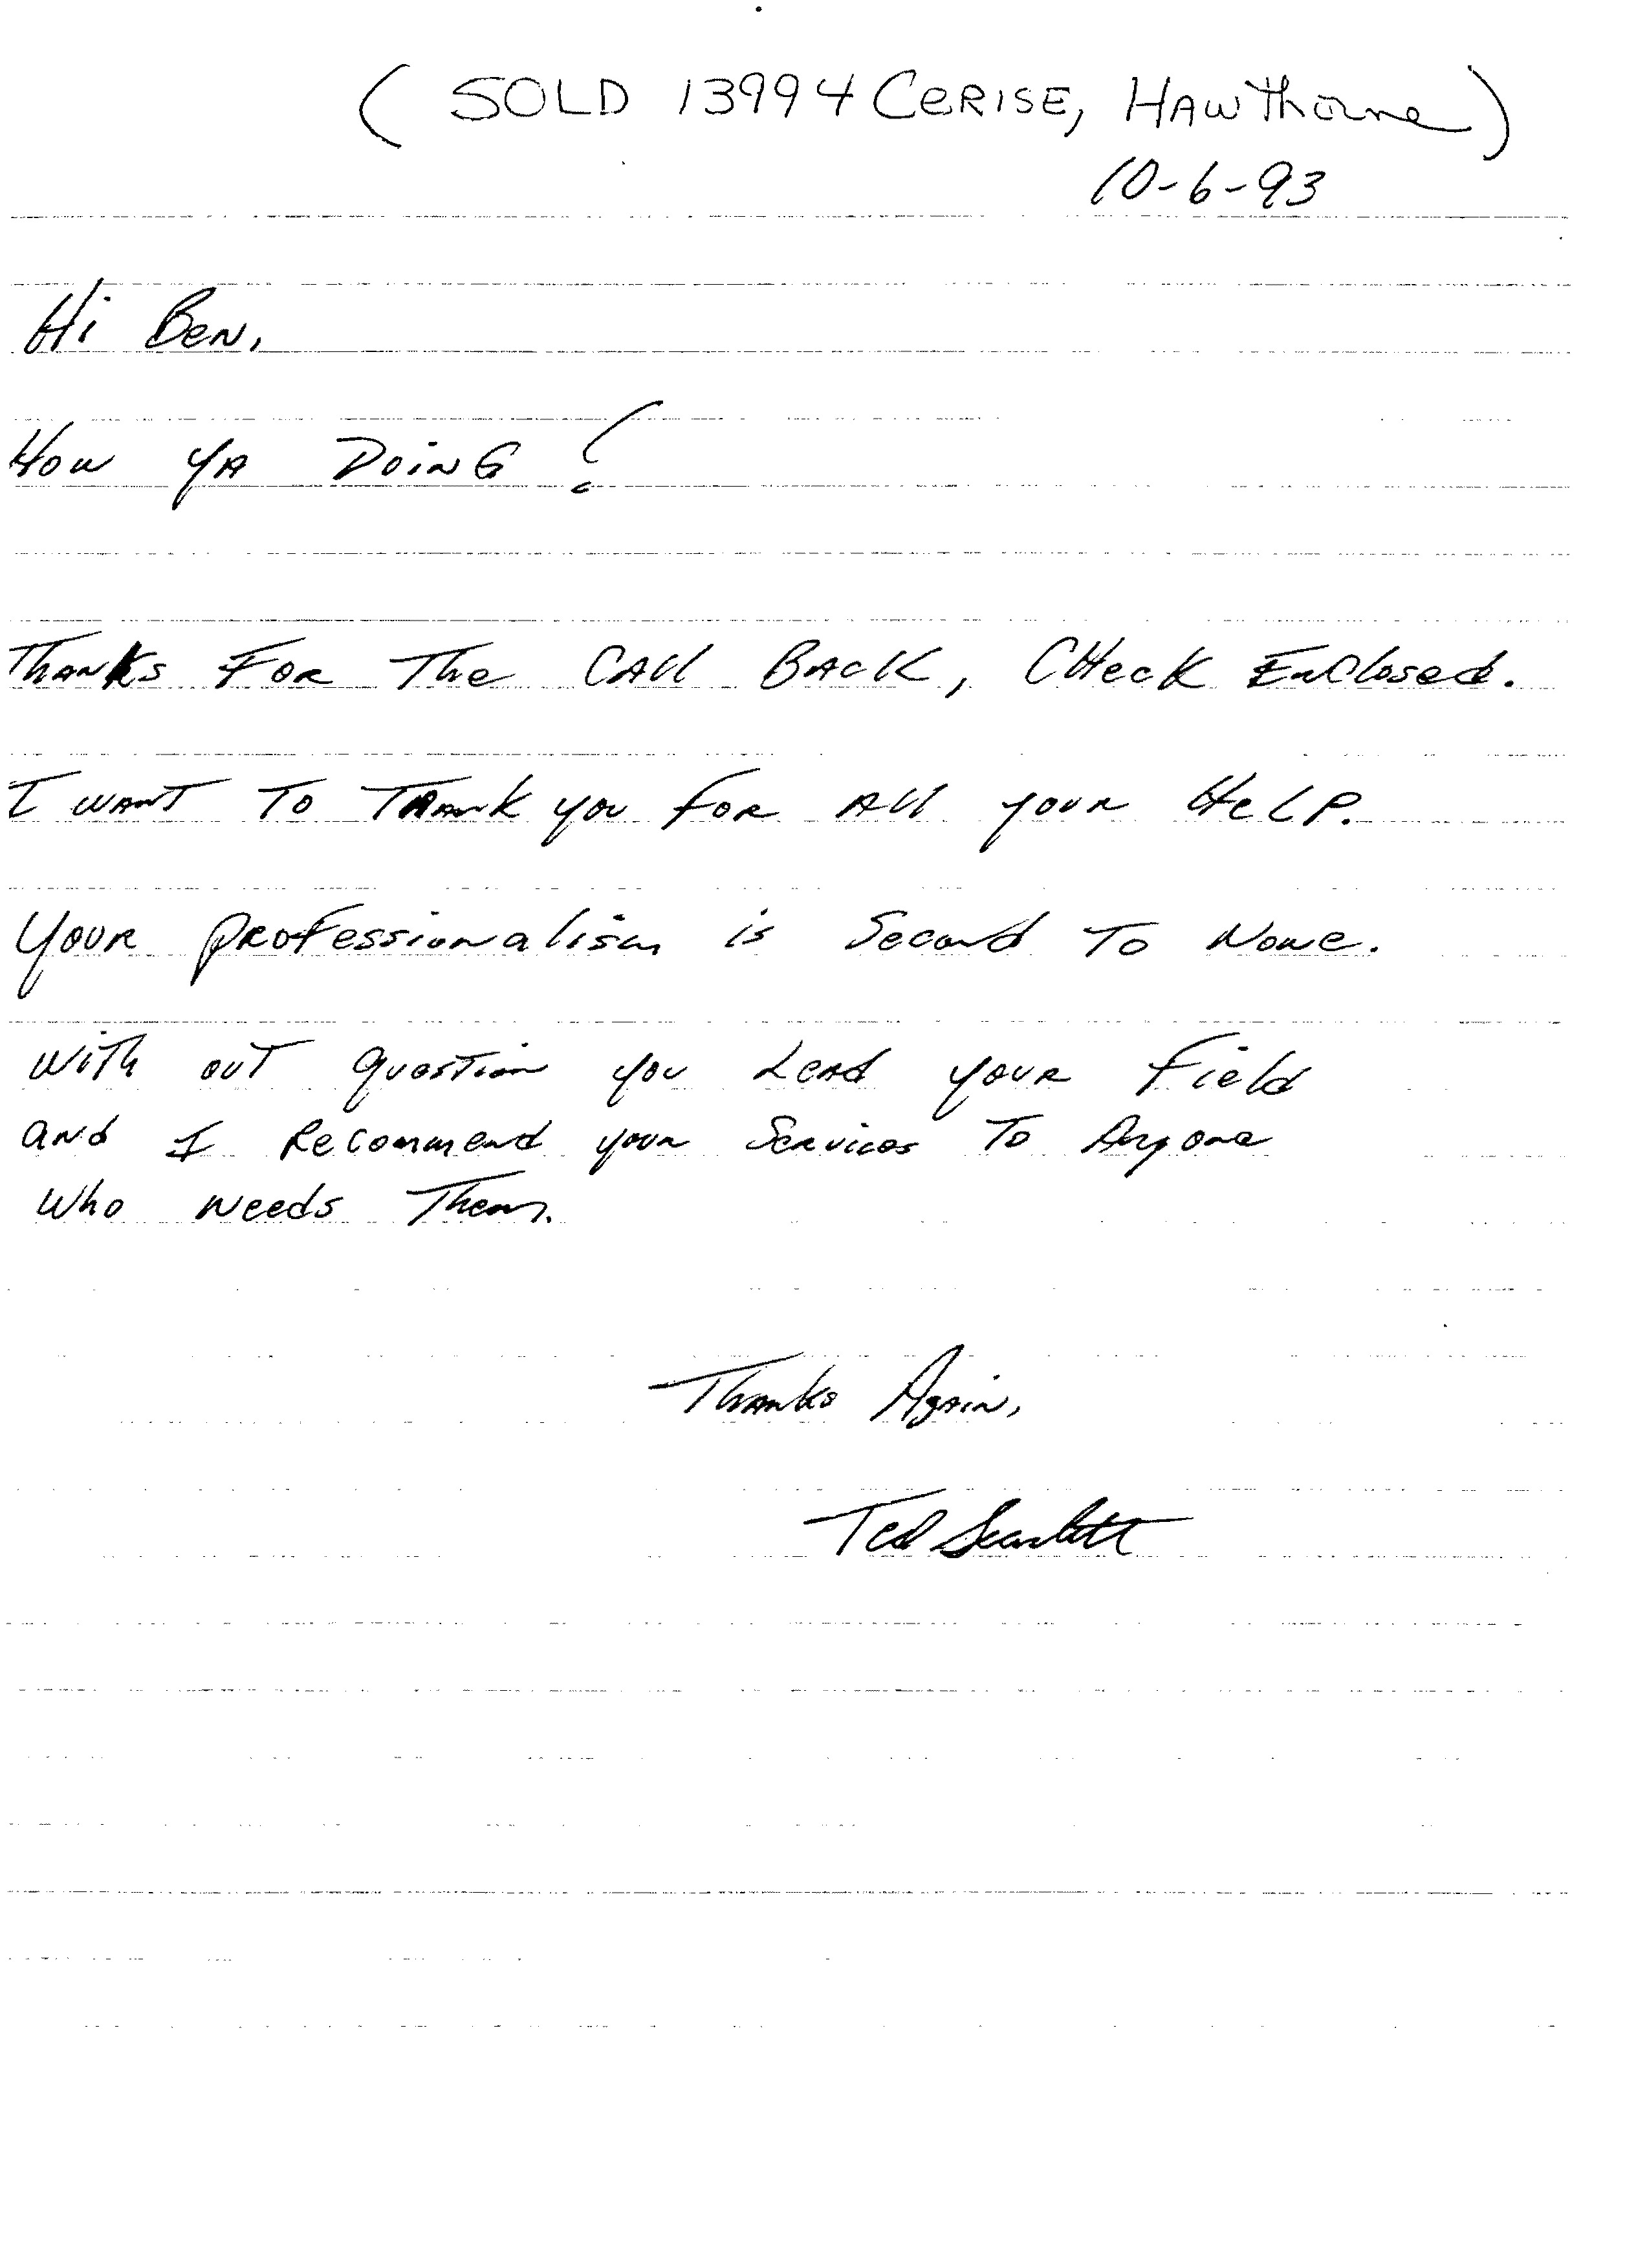 (SOLD 13994 CERISE, HAWThorne)
10-6-93
Hi Ben,
How YA DOiNG?
THANKS FOR The CAll BACK, CHecK EnClosed.
I WANT TO THANK you FOR All your HeLP.
Your PROFessionalism is Second To None.
With out question you Lead your Field
and I Recommend your Services To Anyone
Who Needs Them.
Thanks Again,
Ted Scarlett